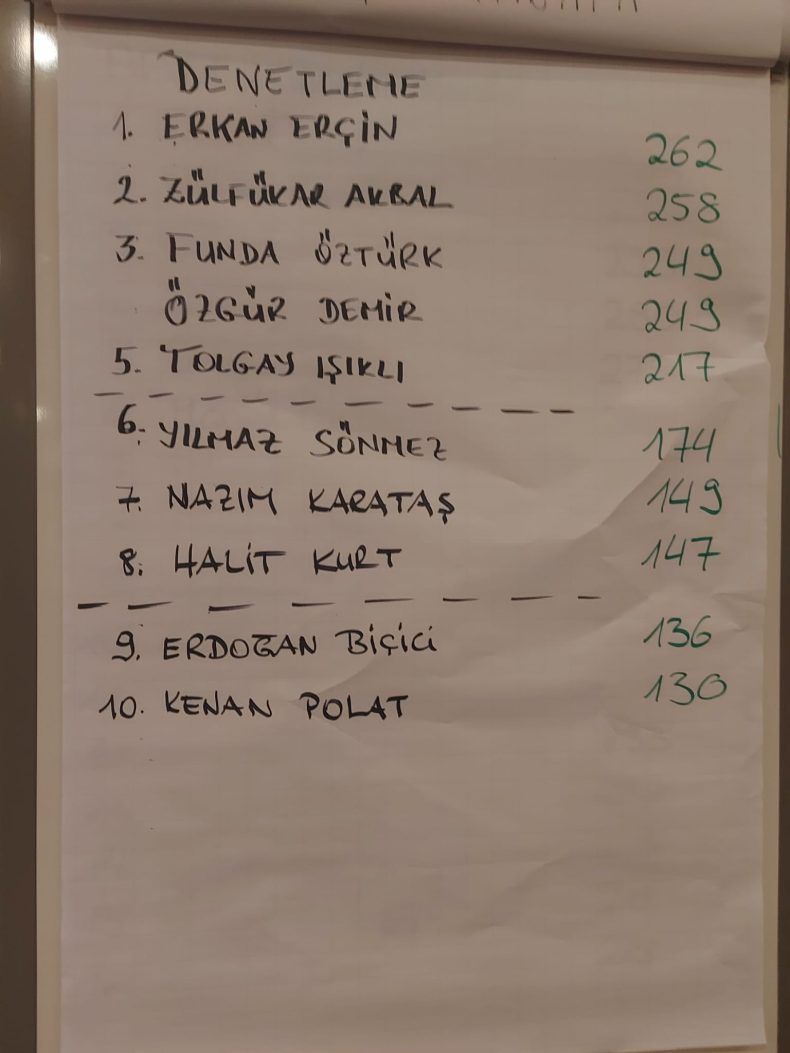 DENETLEME
1. ERKAN ERÇİN 262
2. ZÜLFÜKAR AKBAL 258
3. FUNDA ÖZTÜRK 249
ÖZGÜR DEMİR 249
5. TOLGAY IŞIKLI 217
6. YILMAZ SÖNMEZ 174
7. NAZIM KARATAŞ 149
8. HALİT KURT 147
9. ERDOĞAN BİÇİCİ 136
10. KENAN POLAT 130